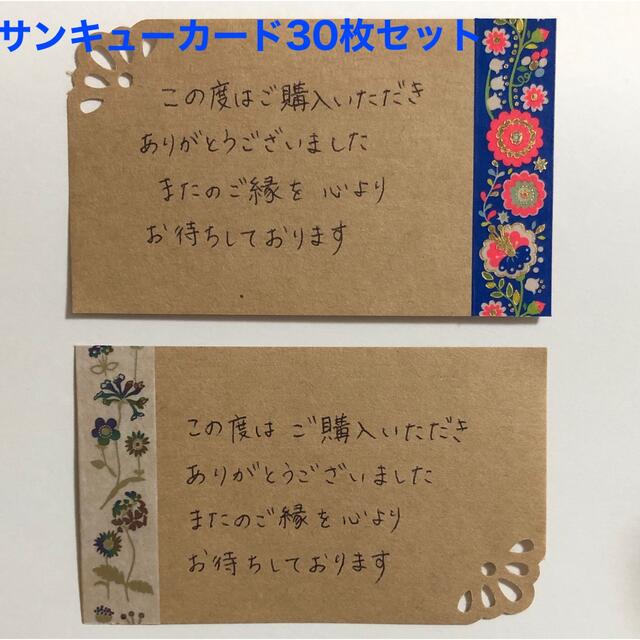 サンキューカード30枚セット
この度はご購入いただき
ありがとうございました
またのご縁を心より
お待ちしております
この度はご購入いただき
ありがとうございました
またのご縁を心より
お待ちしております